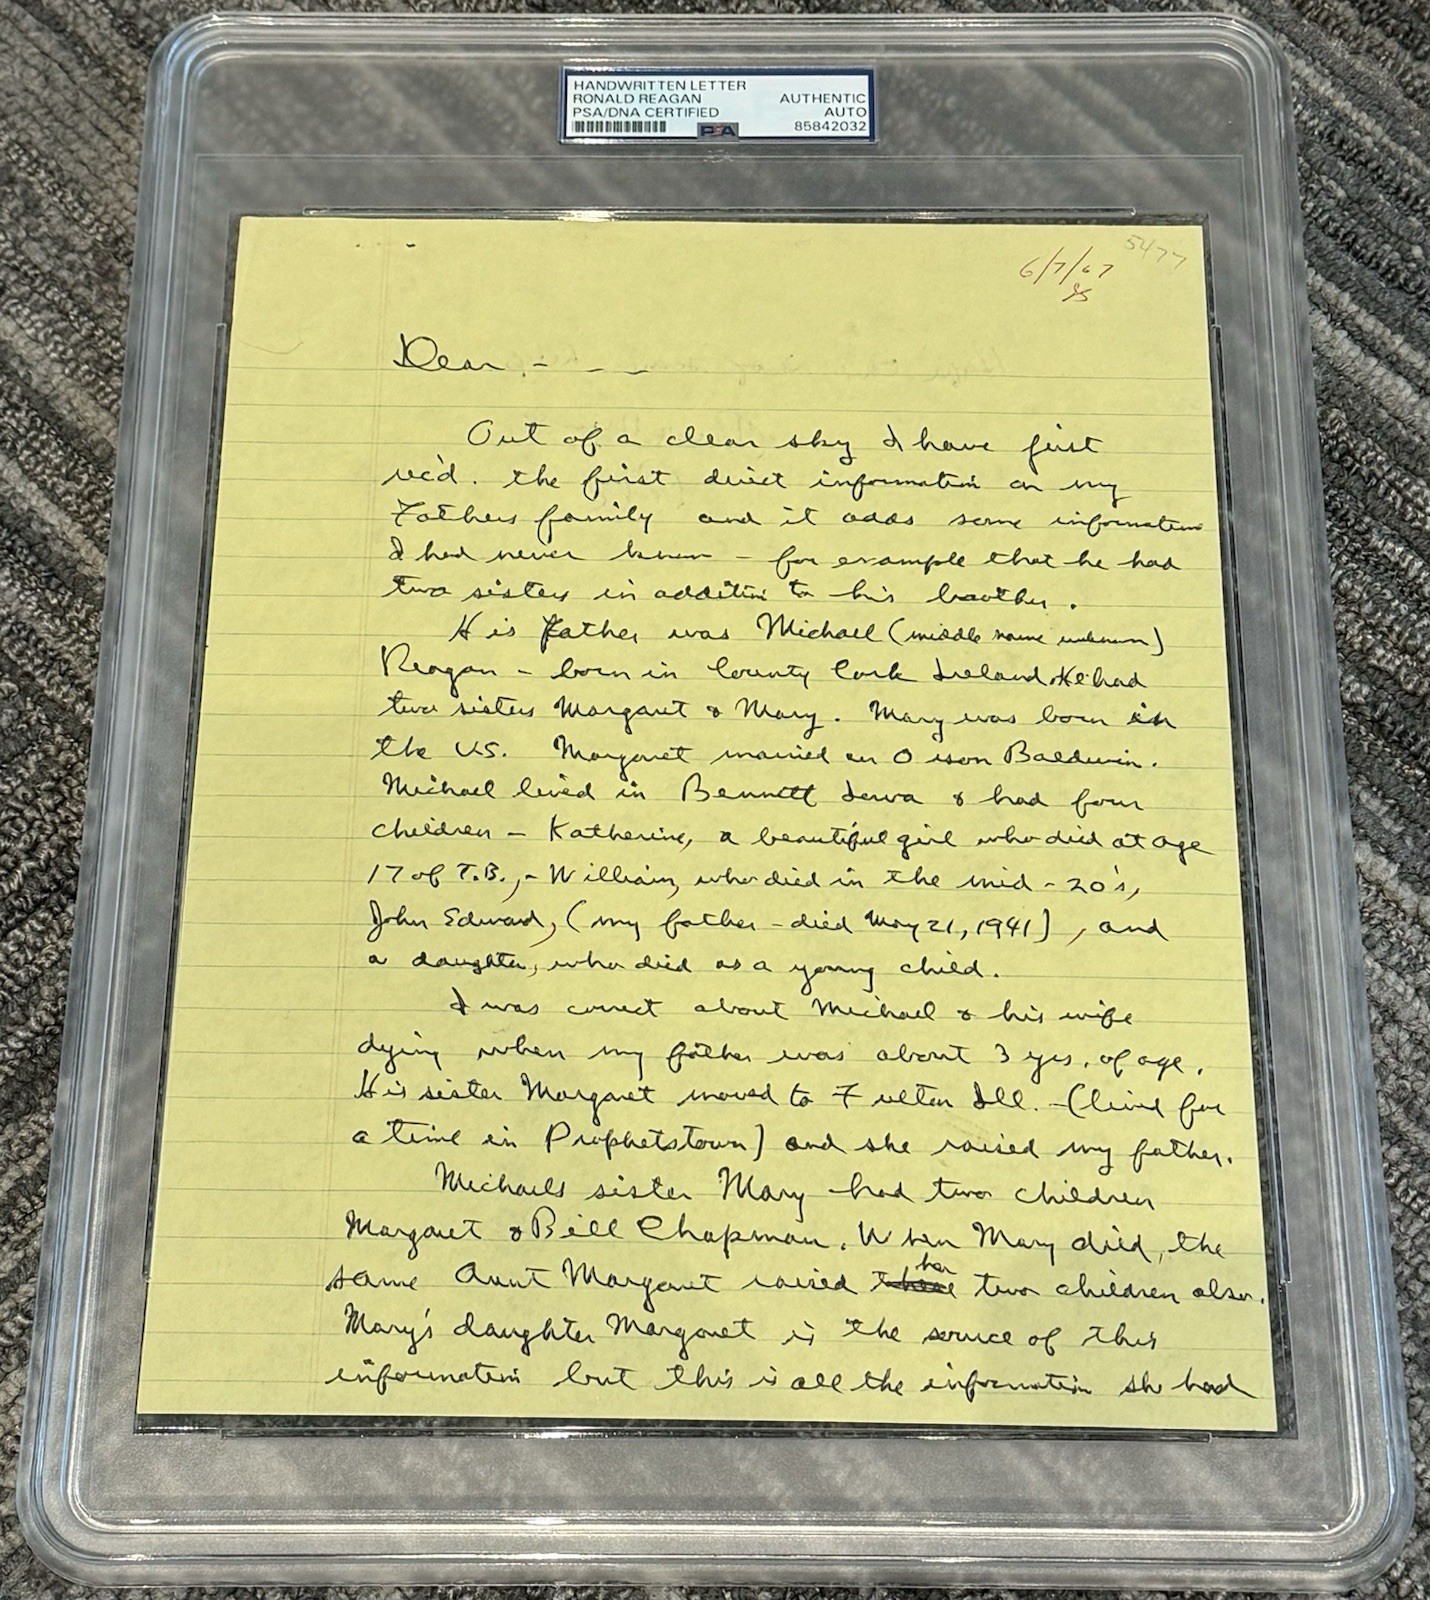 HANDWRITTEN LETTER
RONALD REAGAN AUTHENTIC
PSA/DNA CERTIFIED AUTO
PSA 85842032
5477
6/7/67
Dear - - -
Out of a clear sky I have just
rec'd. the first direct information on my
Fathers family and it adds some information
I had never known - for example that he had
two sisters in addition to his brother.
His Father was Michael (middle name unknown)
Reagan - born in County Cork Ireland. He had
two sisters Margaret & Mary. Mary was born in
the U.S. Margaret married an Orson Baldwin.
Michael lived in Bennett Iowa & had four
children - Katherine, a beautiful girl who died at age
17 of T.B., - William, who died in the mid - 20's,
John Edward, (my father - died May 21, 1941), and
a daughter, who died as a young child.
I was correct about Michael & his wife
dying when my father was about 3 yrs. of age.
His sister Margaret moved to Fulton Ill. - (lived for
a time in Prophetstown) and she raised my father.
Michaels sister Mary had two children
Margaret & Bill Chapman. When Mary died, the
same Aunt Margaret raised her two children also.
Mary's daughter Margaret is the source of this
information but this is all the information she had